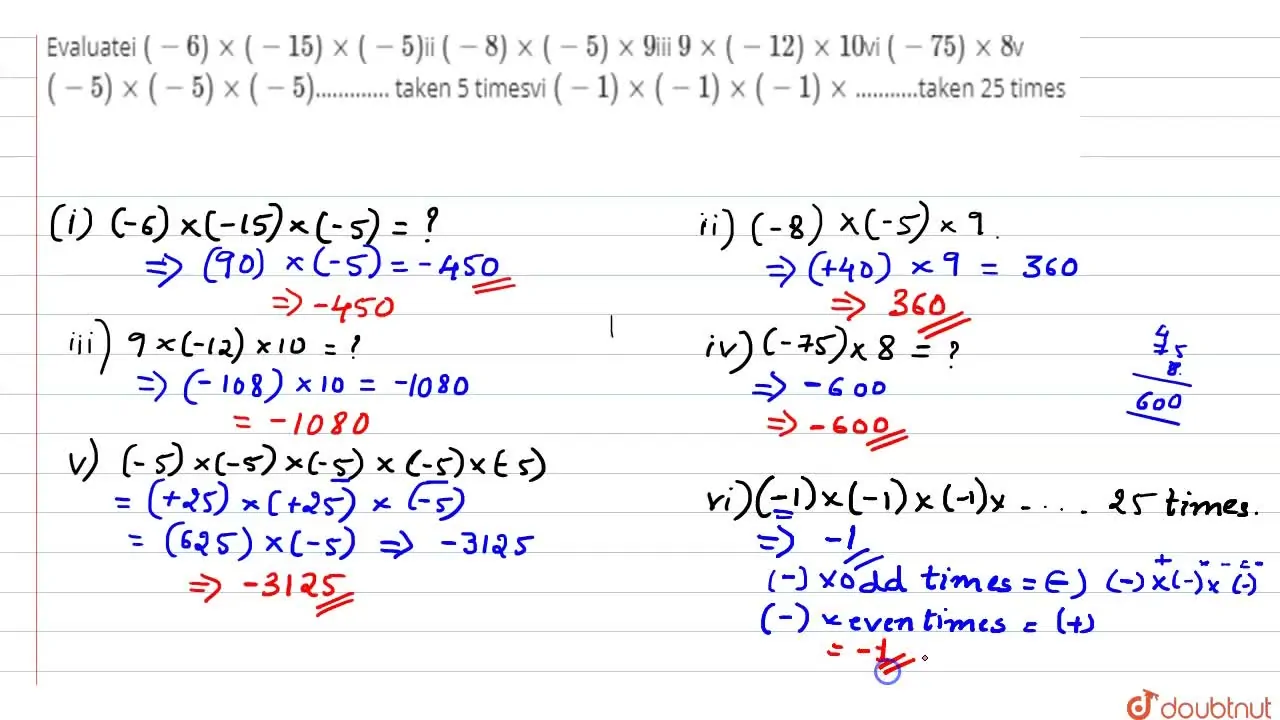 Evaluatei (−6)×(−15)×(−5)ii (−8)×(−5)×9iii 9×(−12)×10vi (−75)×8v
(−5)×(−5)×(−5)............. taken 5 timesvi (−1)×(−1)×(−1)× ...........taken 25 times
(i) (-6)×(-15)×(-5) = ?
⇒ (90) ×(-5) = -450
⇒ -450
ii) (-8) ×(-5)× 9.
⇒ (+40) × 9 = 360
⇒ 360
iii) 9×(-12)×10 = ?
⇒ (-108)×10 = -1080
= -1080
iv) (-75)×8 = ?
⇒ -600
⇒ -600
4
75
8
600
v) (-5)×(-5)×(-5)×(-5)×(-5)
= (+25)×(+25)×(-5)
= (625)×(-5) ⇒ -3125
⇒ -3125
vi) (-1)×(-1)×(-1)×- ... 25 times.
⇒ -1
(-) × odd times = (-) (-)×(-)×(-)
(-) × even times = (+)
= -1
doubtnut